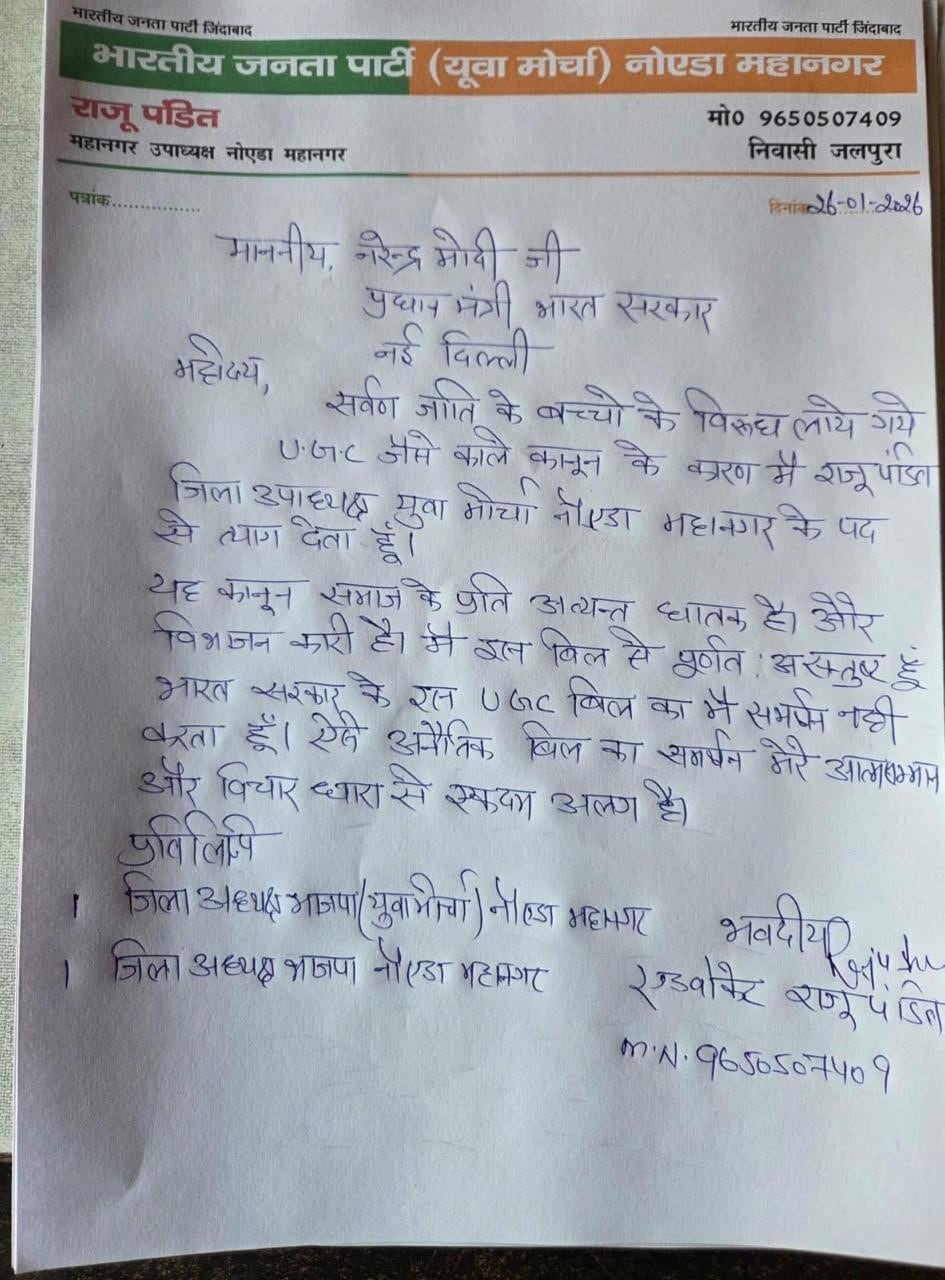 भारतीय जनता पार्टी जिंदाबाद भारतीय जनता पार्टी जिंदाबाद
भारतीय जनता पार्टी (यूवा मोर्चा) नोएडा महानगर
राजू पंडित मो0 9650507409
महानगर उपाध्यक्ष नोएडा महानगर निवासी जलपुरा
पत्रांक................ दिनांक 26-01-2026
माननीय, नरेन्द्र मोदी जी
प्रधान मंत्री भारत सरकार
नई दिल्ली
महोदय,
सर्वण जाति के बच्चो के विरूध लाये गये
U.G.C जैसे काले कानून के कारण मै राजू पंडित
जिला उपाध्यक्ष युवा मोर्चा नौएडा महानगर के पद
से त्याग देता हूँ।
यह कानून समाज के प्रति अत्यन्त घातक है। और
विभाजन कारी है। मै इस बिल से पूर्णत: असन्तुष्ट हूँ
भारत सरकार के इस UGC बिल का मै समर्थन नही
करता हूँ। ऐसे अनैतिक बिल का समर्थन मेरे आत्मसम्मान
और विचार धारा से एकदम अलग है।
प्रतिलिपि
1 जिला अध्यक्ष भाजपा (युवा मोर्चा) नौएडा महानगर भवदीय
1 जिला अध्यक्ष भाजपा नौएडा महानगर एडवोकेट राजू पंडित
M.N. 9650507409